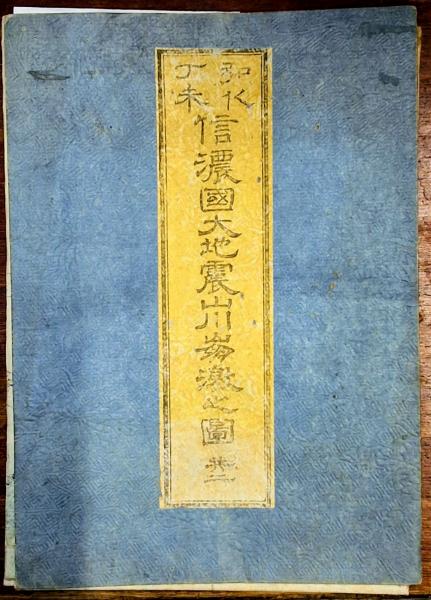 弘化
丁未
信濃國大地震山川崩激之圖 共二